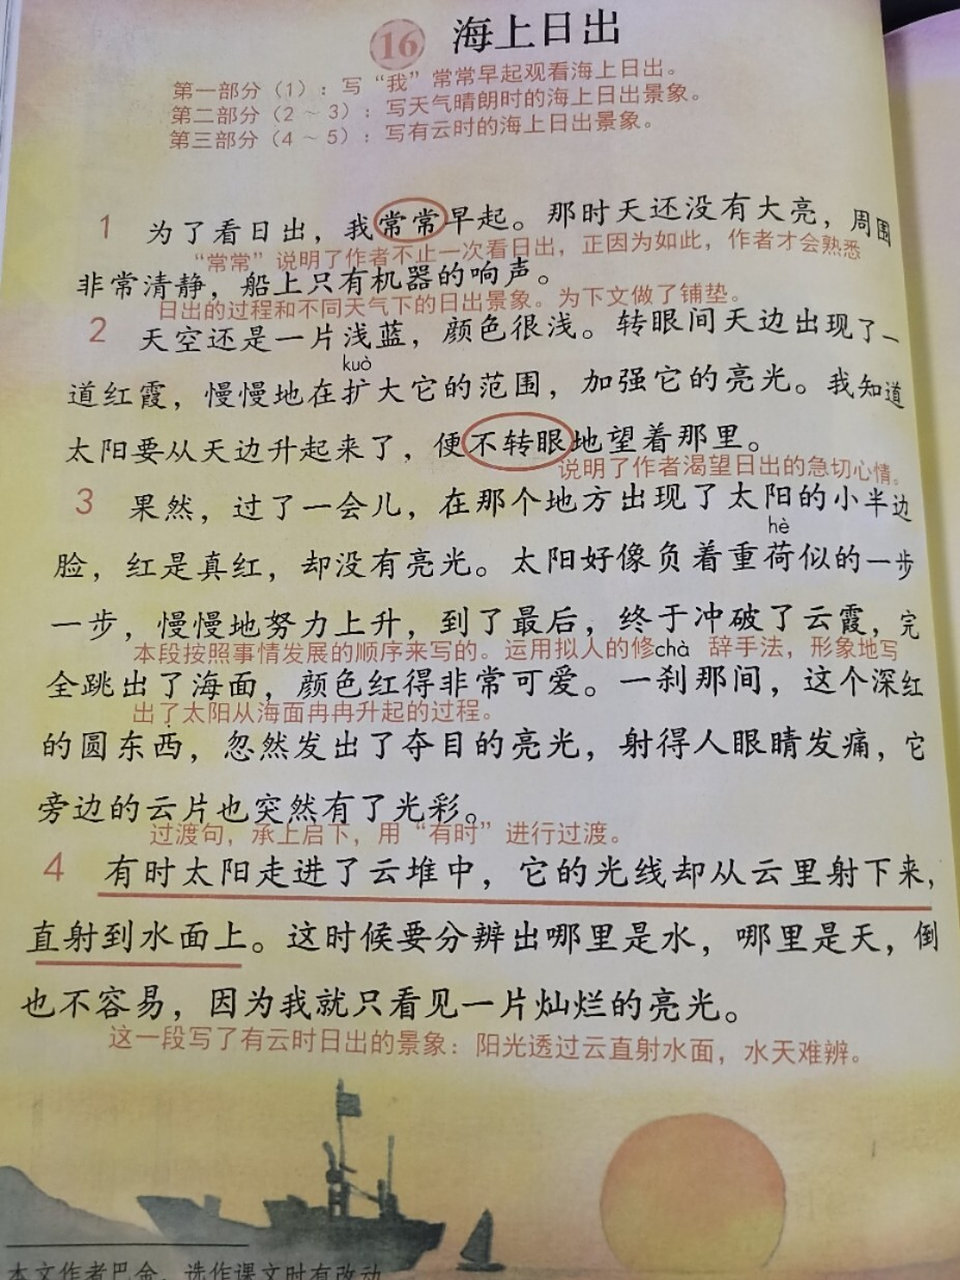 16 海上日出
第一部分（1）：写“我”常常早起观看海上日出。
第二部分（2～3）：写天气晴朗时的海上日出景象。
第三部分（4～5）：写有云时的海上日出景象。
1 为了看日出，我常常早起。那时天还没有大亮，周围
“常常”说明了作者不止一次看日出，正因为如此，作者才会熟悉
非常清静，船上只有机器的响声。
日出的过程和不同天气下的日出景象。为下文做了铺垫。
2 天空还是一片浅蓝，颜色很浅。转眼间天边出现了一
kuò
道红霞，慢慢地在扩大它的范围，加强它的亮光。我知道
太阳要从天边升起来了，便不转眼地望着那里。
说明了作者渴望日出的急切心情。
3 果然，过了一会儿，在那个地方出现了太阳的小半边
hè
脸，红是真红，却没有亮光。太阳好像负着重荷似的一步
一步，慢慢地努力上升，到了最后，终于冲破了云霞，完
本段按照事情发展的顺序来写的。运用拟人的修chà 辞手法，形象地写
全跳出了海面，颜色红得非常可爱。一刹那间，这个深红
出了太阳从海面冉冉升起的过程。
的圆东西，忽然发出了夺目的亮光，射得人眼睛发痛，它
旁边的云片也突然有了光彩。
过渡句，承上启下，用“有时”进行过渡。
4 有时太阳走进了云堆中，它的光线却从云里射下来，
直射到水面上。这时候要分辨出哪里是水，哪里是天，倒
也不容易，因为我就只看见一片灿烂的亮光。
这一段写了有云时日出的景象：阳光透过云直射水面，水天难辨。
本文作者巴金，选作课文时有改动